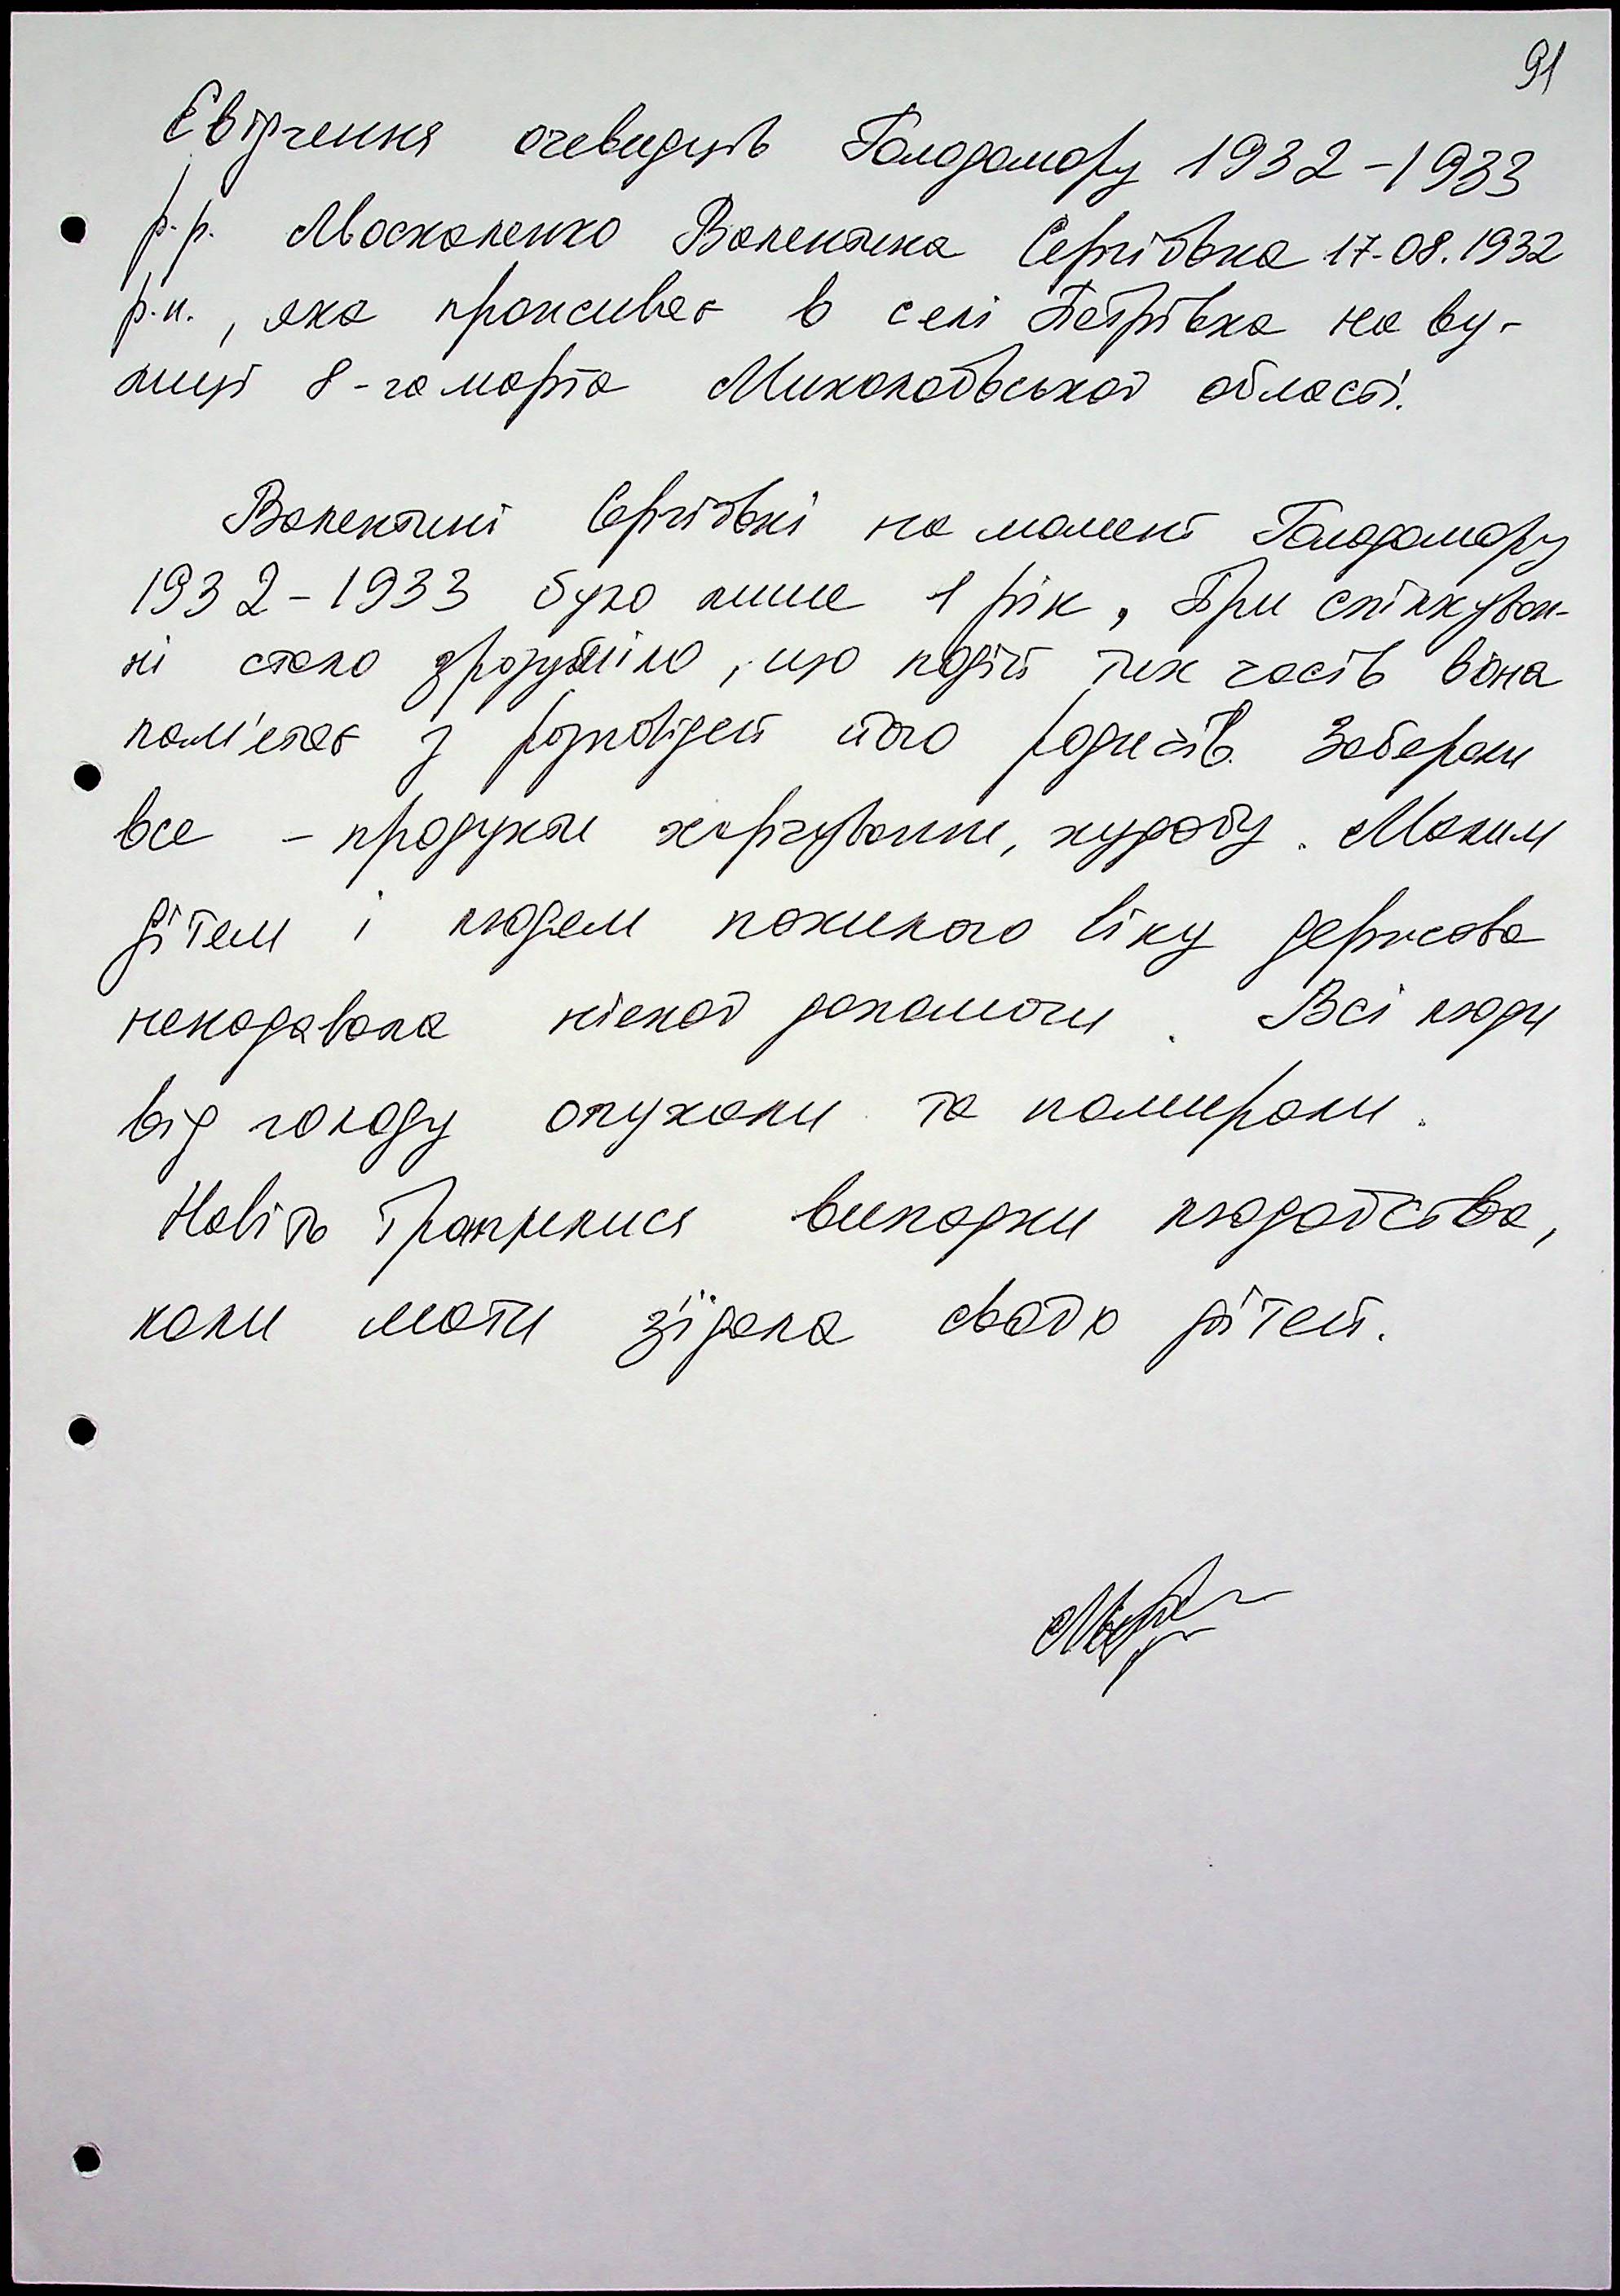 91
Свідчення очевидців Голодомору 1932-1933
р.р. Москаленко Валентина Сергіївна 17.08.1932
р.н., яка проживає в селі Петрівка на ву-
лиці 8-го марта Миколаївської області.
Валентині Сергіївні на момент Голодомору
1932-1933 було лише 1 рік, При спілкуван-
ні стало зрозуміло, що події тих часів вона
пам'ятає з розповідей його родичів. Забирали
все - продукти харчування, худобу. Малим
дітям і людям похилого віку держава
ненадавала ніякої допомоги. Всі люди
від голоду опухали та помирали.
Навіть траплялися випадки людоїдства,
коли мати з'їдала своїх дітей.